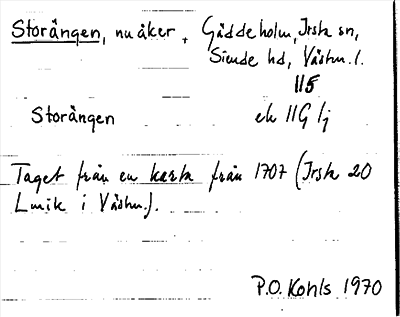 Storängen, nu åker, Gäddeholm, Irsta sn,
Siende hd, Västm. l.
115
Storängen ek 11G 1j
Taget från en karta från 1707 (Irsta 20
Lmk i Västm.).
P.O. Kohls 1970